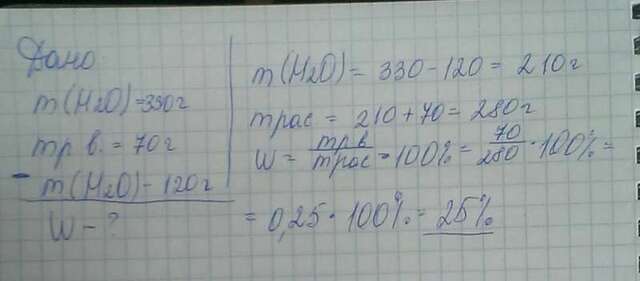 Дано
m(H₂O)=330г
mр в. = 70г
- m(H₂O) - 120г
W - ?
m(H₂O) = 330 - 120 = 210г
mрас = 210 + 70 = 280г
W = mрв/mрас · 100% = 70/280 · 100% =
= 0,25 · 100% = 25%